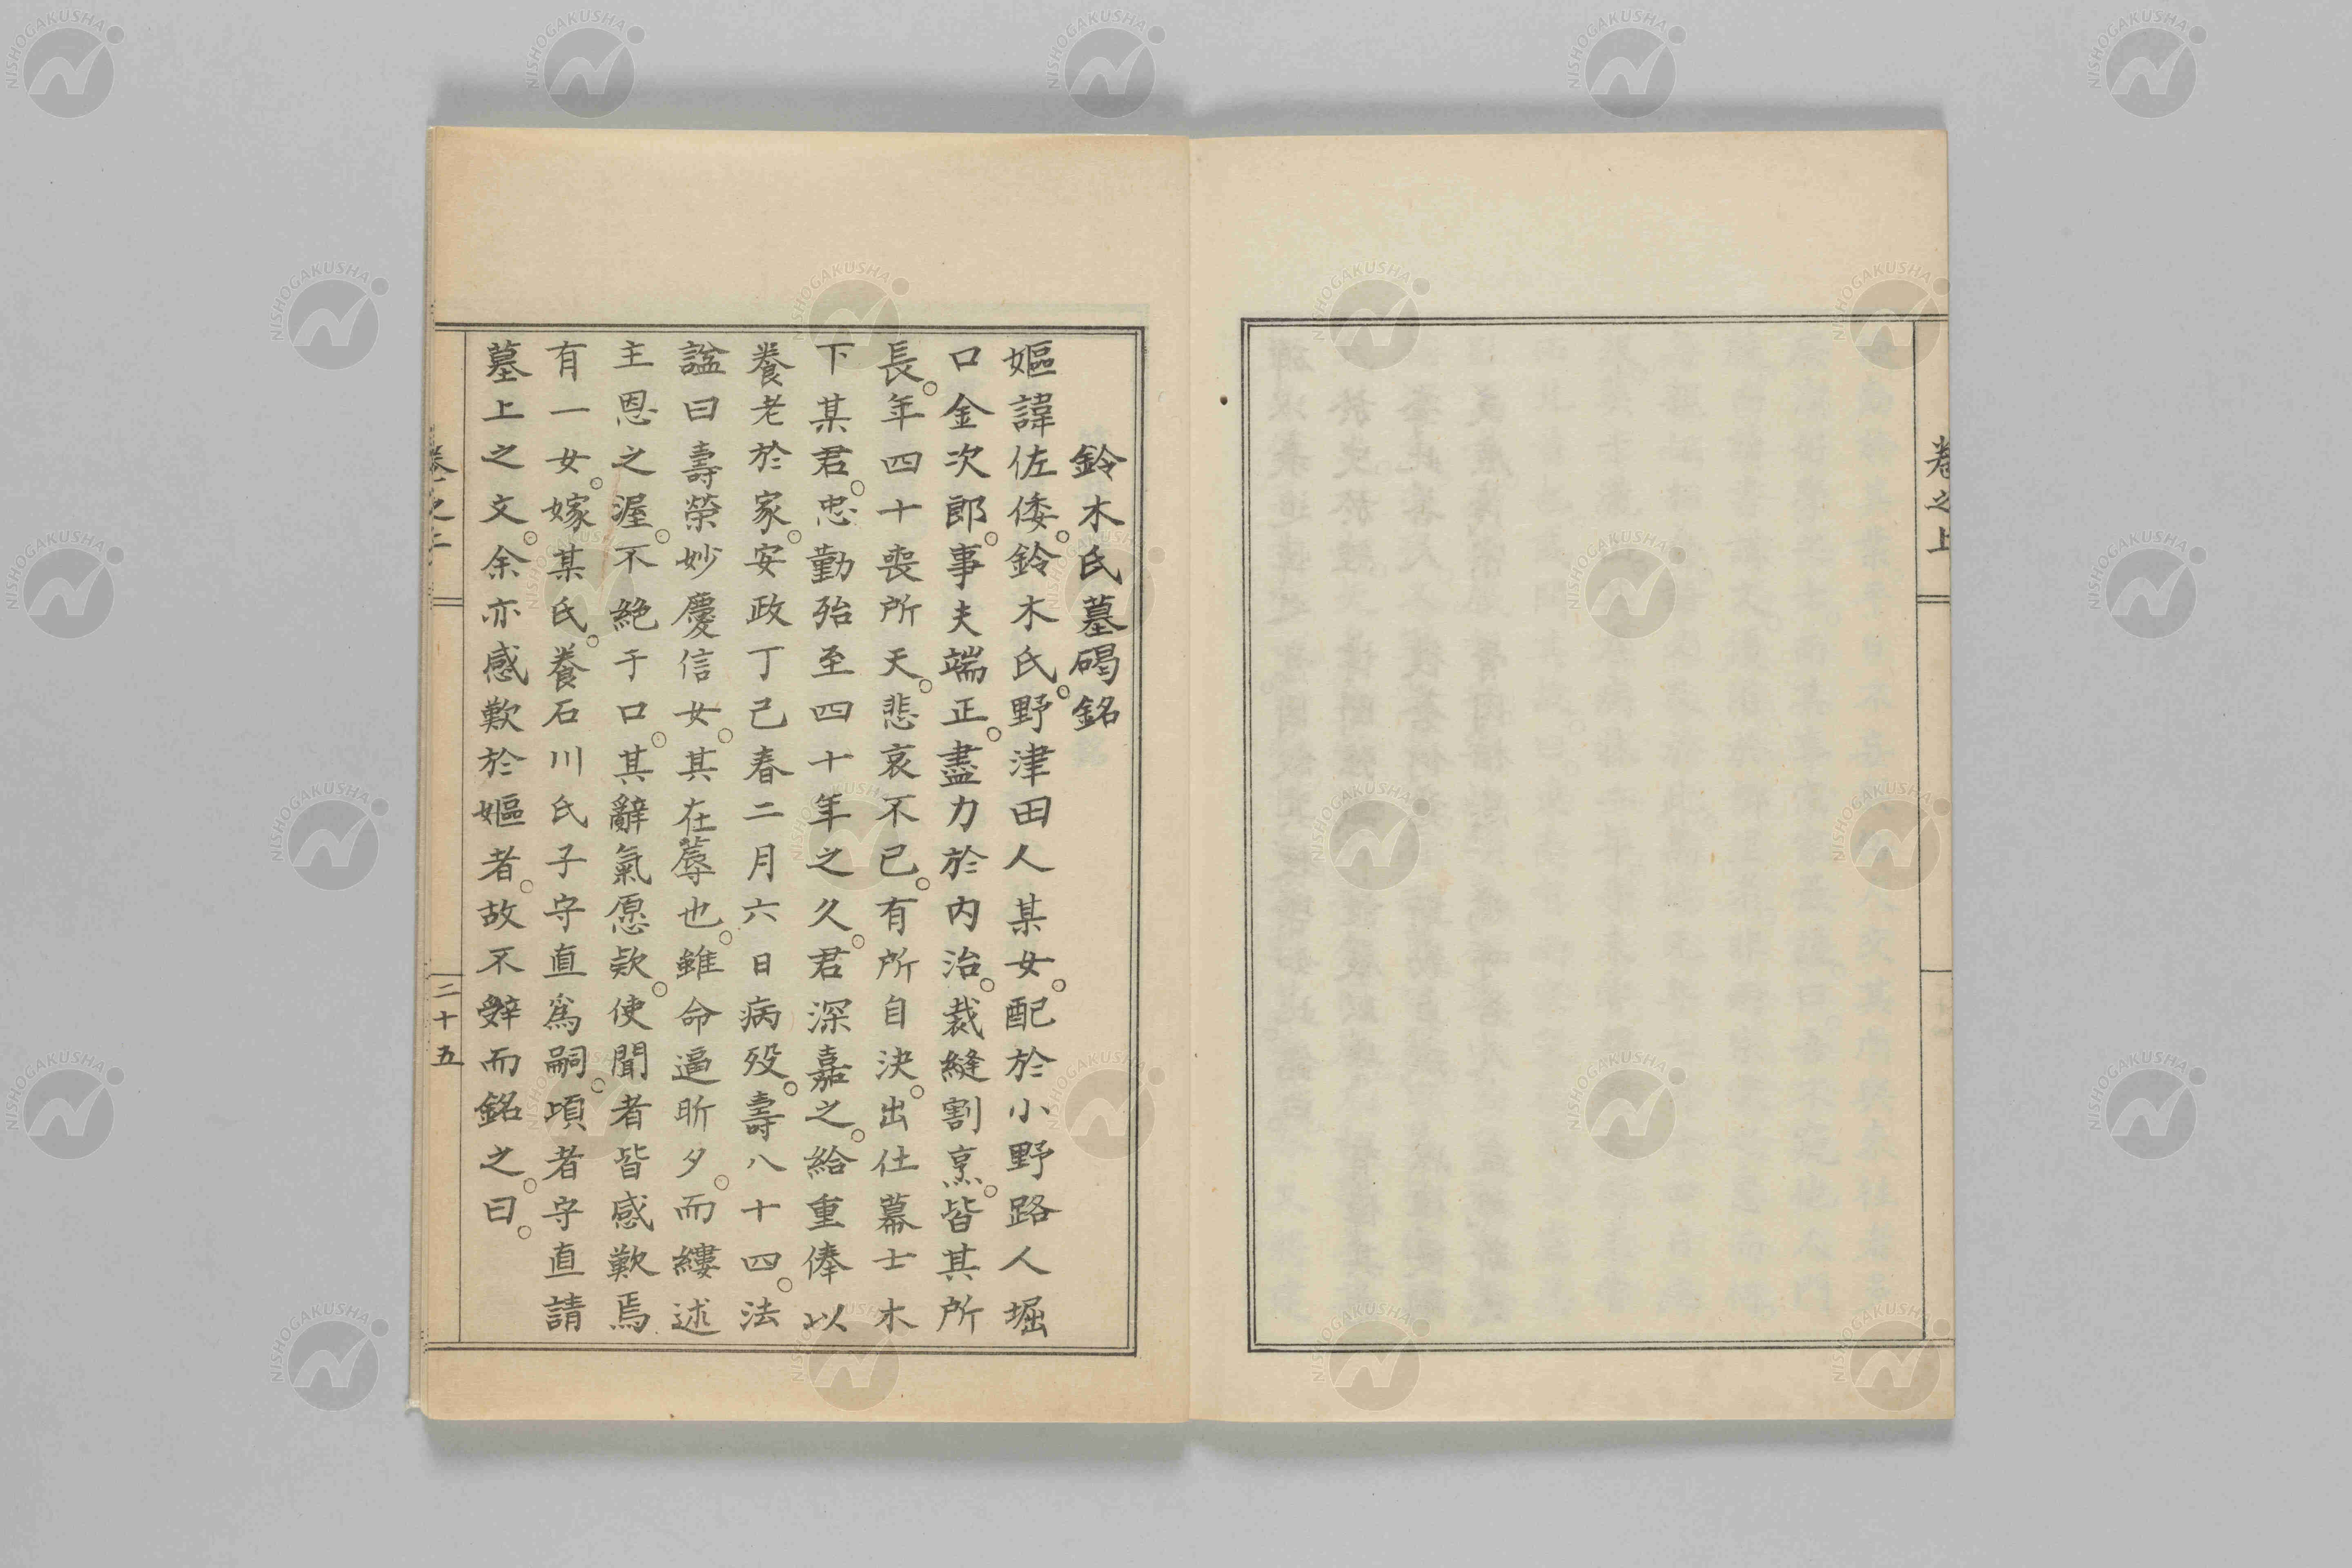 卷之上
鈴木氏墓碣銘
嫗諱佐倭。鈴木氏。野津田人某女。配於小野路人堀
口金次郎。事夫端正。盡力於内治。裁縫割烹。皆其所
長。年四十喪所天。悲哀不已。有所自決。出仕幕士木
下某君。忠勤殆至四十年之久。君深嘉之。給重俸以
養老於家。安政丁己春二月六日病歿。壽八十四。法
謚曰壽榮妙慶信女。其在蓐也。雖命逼昕夕。而縷述
主恩之渥。不絶于口。其辭氣愿欵。使聞者皆感歎焉
有一女。嫁某氏。養石川氏子守直爲嗣。頃者守直請
墓上之文。余亦感歎於嫗者。故不辤而銘之。曰。
卷之上
二十五
NISHOGAKUSHA